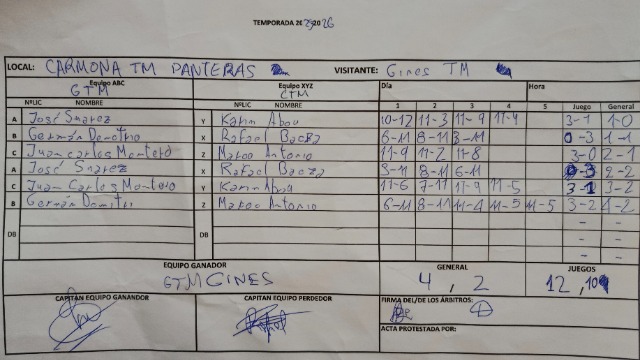 TEMPORADA 2025-2026
LOCAL: CARMONA TM PANTERAS VISITANTE: Gines TM
Equipo ABC Equipo XYZ Día Hora
GTM CTM
NºLIC NOMBRE NºLIC NOMBRE 1 2 3 4 5 Juego General
A José Suarez Y Karim Abou 10-12 11-3 11-9 11-4 3-1 1-0
B Germán X Rafael Baeza 6-11 8-11 3-11 0-3 1-1
C Juan carlos Montero Z Marco Antonio 11-9 11-2 11-8 3-0 2-1
A José Suarez X Rafael Baeza 3-11 8-11 6-11 0-3 2-2
C Juan Carlos Montero Y Karim Abou 11-6 7-11 11-9 11-5 3-1 3-2
B Germán Z Marco Antonio 6-11 8-11 11-4 11-5 11-5 3-2 4-2
- -
DB DB - -
- -
EQUIPO GANADOR GENERAL JUEGOS
GTM GINES 4, 2 12, 10
CAPITÁN EQUIPO GANADOR CAPITAN EQUIPO PERDEDOR FIRMA DEL/DE LOS ÁRBITROS:
ACTA PROTESTADA POR: